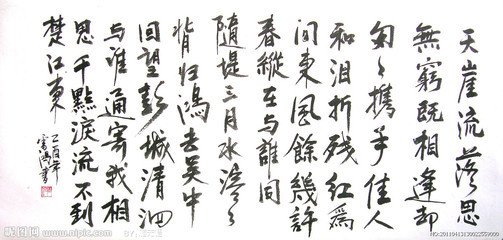 天崖流落思
無窮既相逢却
匆々携手佳人
和泪折残红為
问東風餘幾許
春縱在与誰同
隨堤三月水溶々
背归鸿去吴中
回望彭城清泗
与淮通寄我相
思千點淚流不到
楚江東
乙酉年
書
昵图网 www.nipic.com